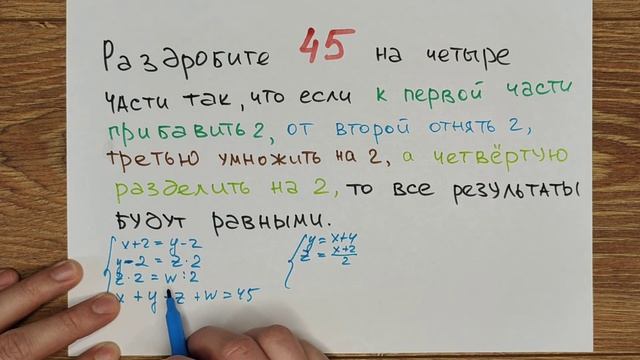 Раздробите 45 на четыре
части так, что если к первой части
прибавить 2, от второй отнять 2,
третью умножить на 2, а четвёртую
разделить на 2, то все результаты
будут равными.
x+2=y-2
y-2=z·2
z·2=w:2
x+y+z+w=45
y=x+4
z=\frac{x+2}{2}